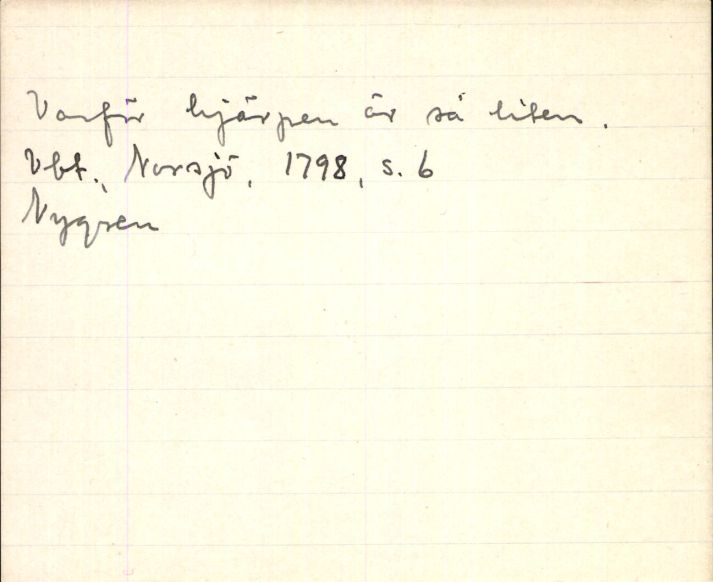 Varför hjärpen är så liten.
Vbt., Norsjö, 1798, s. 6
Nygren